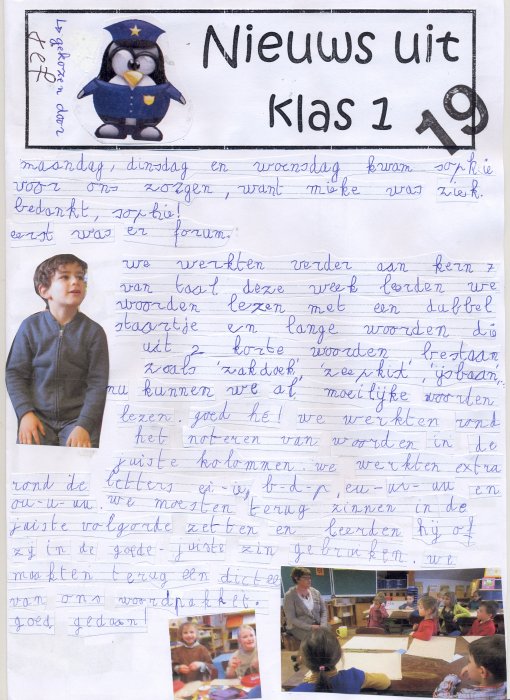 Nieuws uit
klas 1
19
gekozen door
Jef
maandag, dinsdag en woensdag kwam sophie
voor ons zorgen, want mieke was ziek.
bedankt, sophie!
eerst was er forum.
we werkten verder aan kern 7
van taal deze week leerden we
woorden lezen met een dubbel
staartje en lange woorden die
uit 2 korte woorden bestaan
zoals 'zakdoek', 'zeepkist',
nu kunnen we al moeilijke woorden
lezen. goed hé! we werkten rond
het noteren van woorden in de
juiste kolommen. we werkten extra
rond de letters ei-ij, b-d-p, eu-ui-uu en
ou-u-uu. we moesten terug zinnen in de
juiste volgorde zetten en leerden hij of
zij in de goede-juiste zin gebruiken. we
maakten terug een dictee
van ons woordpakket.
goed gedaan!